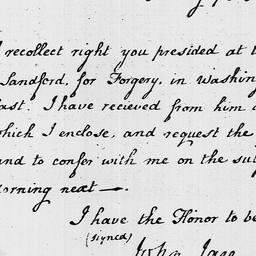 I recollect right you presided at t
Landford, for Forgery, in Washing
ast. I have recieved from him a
which I enclose, and request the
and to confer with me on the su
orning next—.
I have the Honor to be
(signed)
John Jay